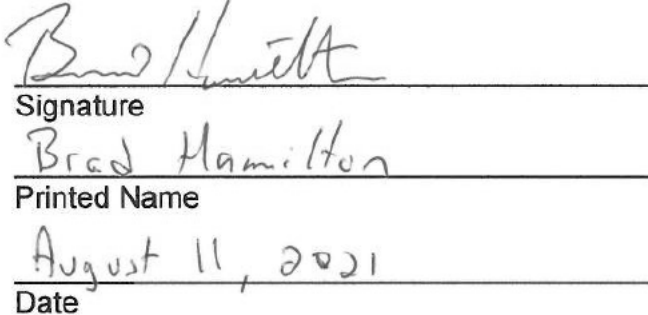 Brad Hamilton
Signature
Brad Hamilton
Printed Name
August 11, 2021
Date